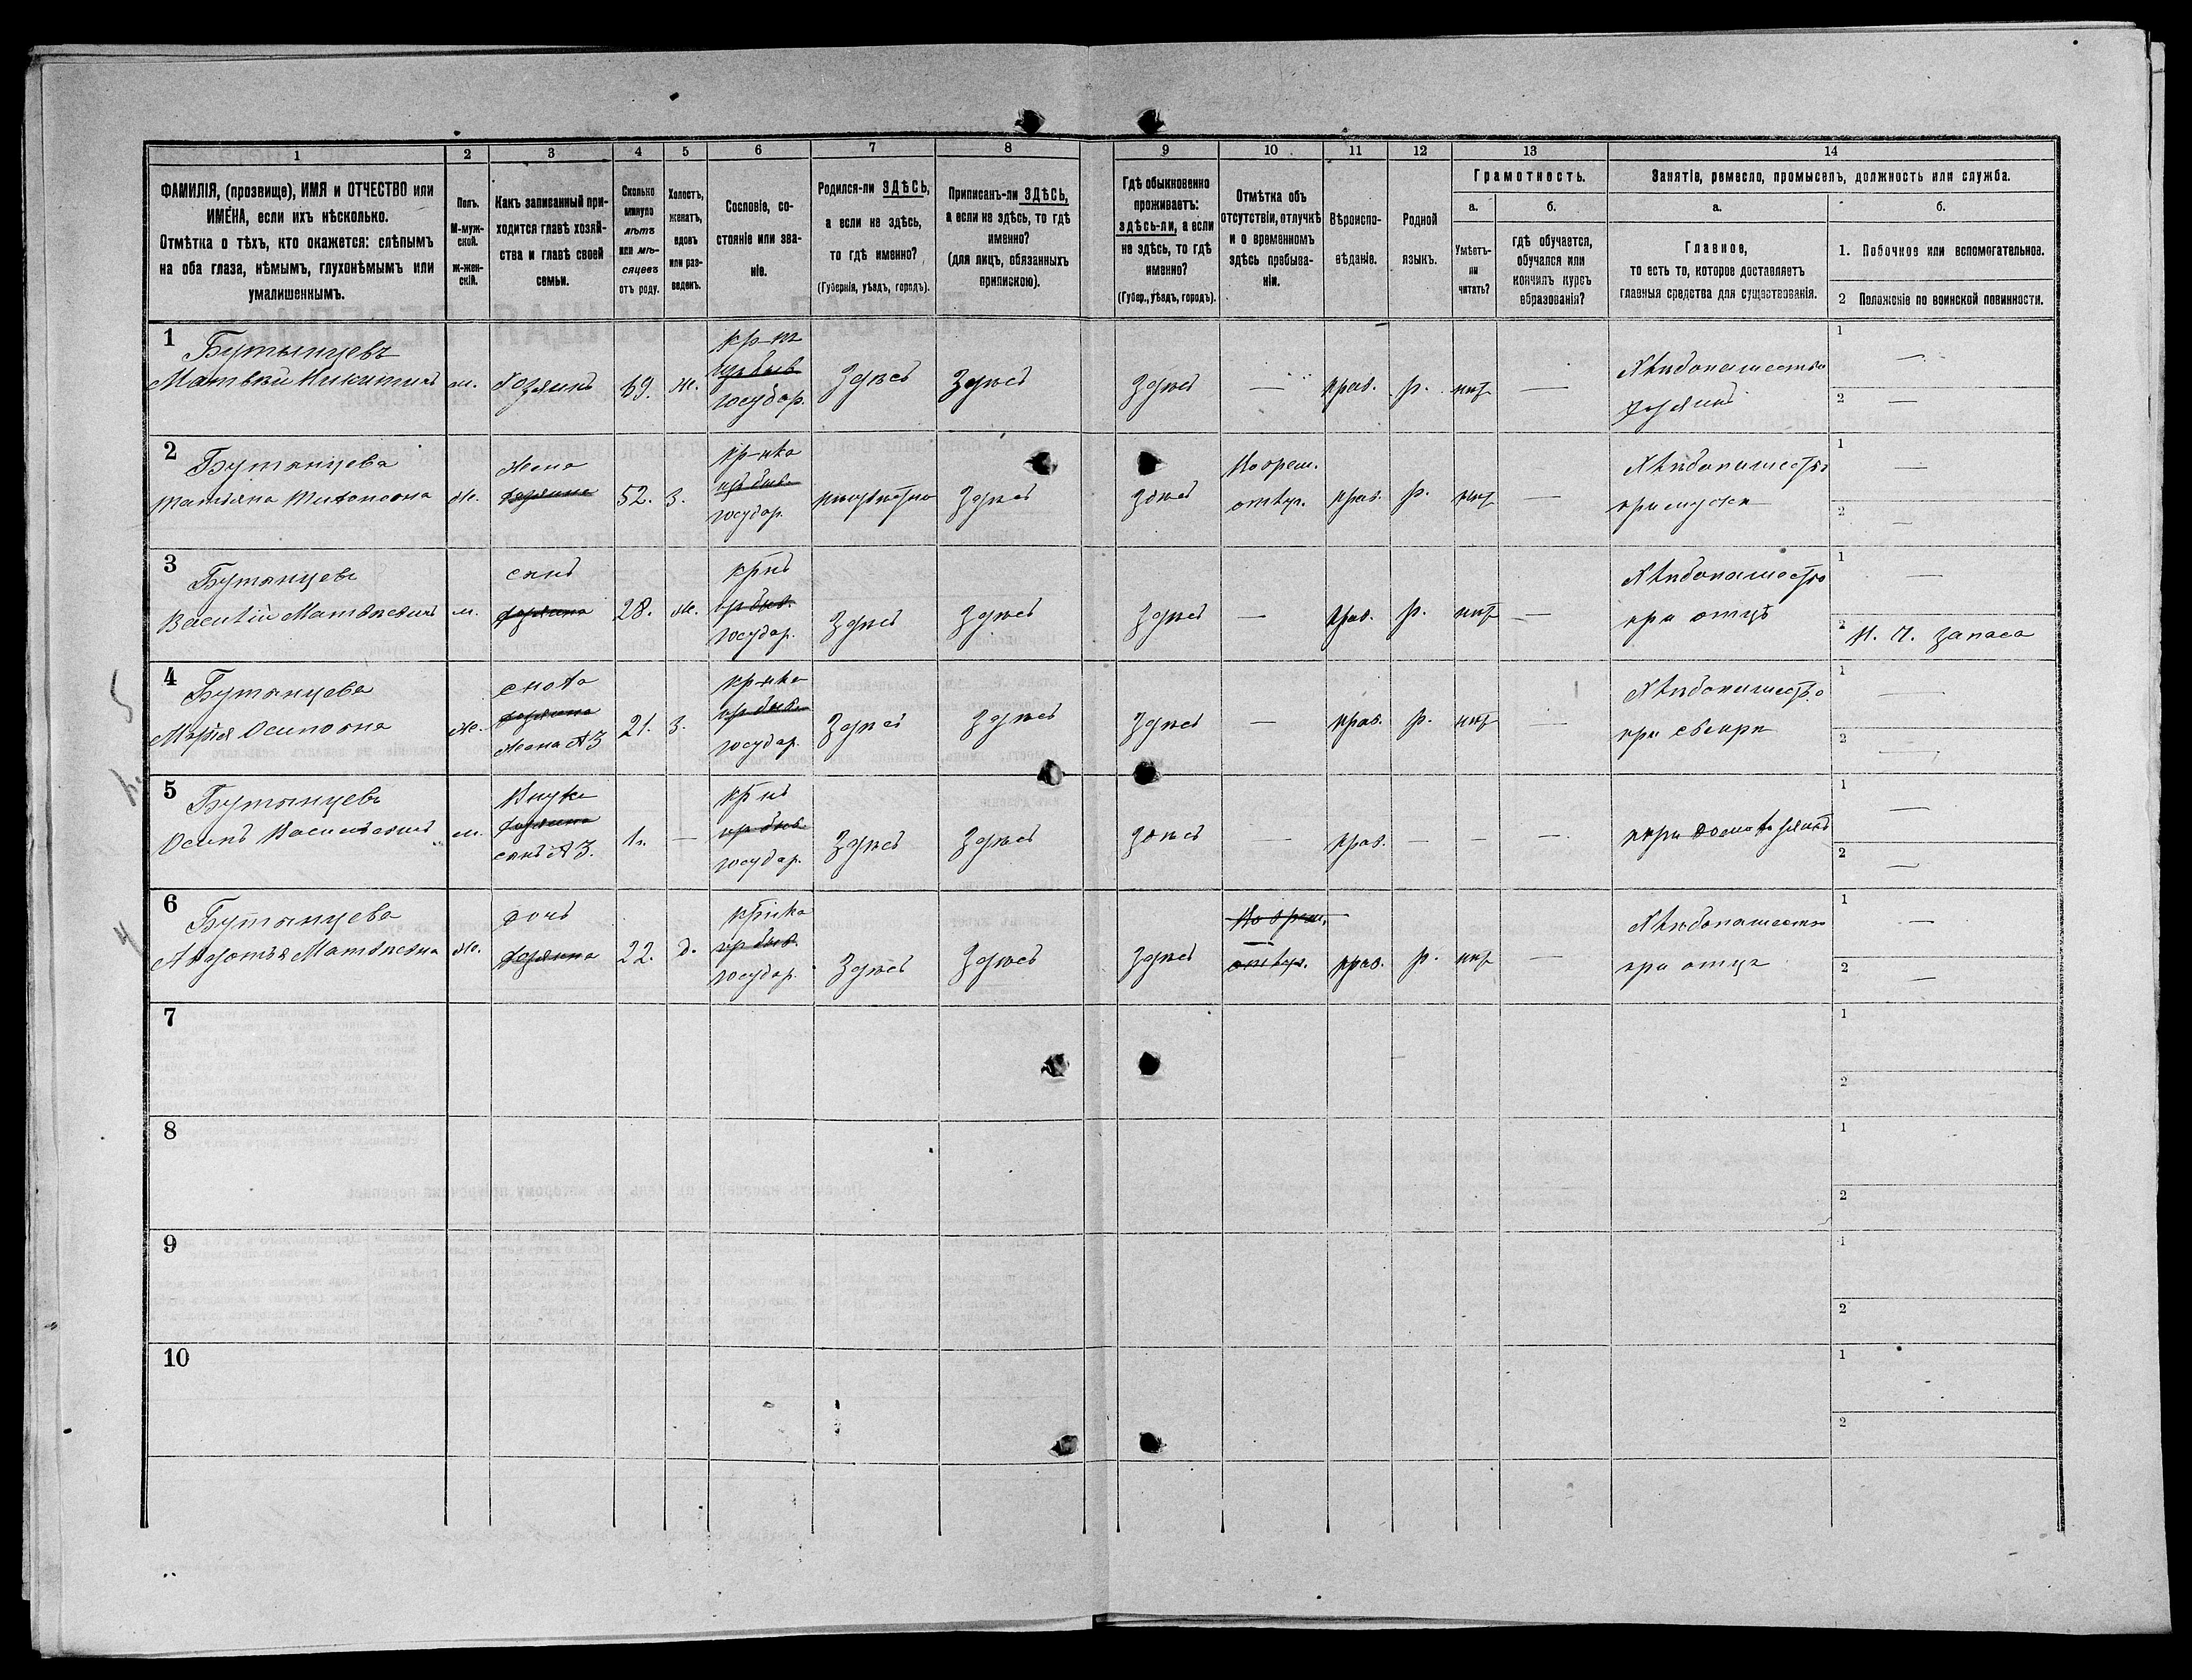 1
2
3
4
5
6
7
8
9
10
11
12
13
14
ФАМИЛІЯ, (прозвище), ИМЯ и ОТЧЕСТВО или
ИМЕНА, если ихъ нѣсколько.
Отмѣтка о тѣхъ, кто окажется: слѣпымъ
на оба глаза, нѣмымъ, глухонѣмымъ или
умалишеннымъ.
Полъ.
М-муж-
ской.
ж-жен-
скій.
Какъ записанный при-
ходится главѣ хозяй-
ства и главѣ своей
семьи.
Сколько
минуло
лѣтъ
или мѣ-
сяцевъ
отъ роду.
Холостъ,
женатъ,
вдовъ
или раз-
веденъ.
Сословіе, со-
стояніе или зва-
ніе.
Родился-ли ЗДѢСЬ,
а если не здѣсь,
то гдѣ именно?
(Губернія, уѣздъ, городъ).
Приписанъ-ли ЗДѢСЬ,
а если не здѣсь, то гдѣ
именно?
(для лицъ, обязанныхъ
припискою).
Гдѣ обыкновенно
проживаетъ:
здѣсь-ли, а если
не здѣсь, то гдѣ
именно?
(Губер., уѣздъ, городъ).
Отмѣтка объ
отсутствіи, отлучкѣ
и о временномъ
здѣсь пребыва-
ніи.
Вѣроиспо-
вѣданіе.
Родной
языкъ.
Грамотность.
а.
б.
Умѣетъ-
ли
читать?
гдѣ обучается,
обучался или
кончилъ курсъ
образованія?
Занятіе, ремесло, промыселъ, должность или служба.
а.
б.
Главное,
то есть то, которое доставляетъ
главныя средства для существованія.
1. Побочное или вспомогательное.
2 Положеніе по воинской повинности.
1
Бутынцевъ кр-нъ
Матвѣй Никитинъ м. Хозяинъ 69. ж. изъ быв. государ. Здѣсь Здѣсь Здѣсь — прав. р. нѣтъ — Хлѣбопашество
хозяинъ
1 —
2 —
2
Бутынцева жена кр-нка На врем.
Татьяна ж. хозяина 52. З. изъ быв. государ. Здѣсь Здѣсь отлуч. прав. р. нѣтъ — Хлѣбопашество
при мужѣ
1 —
2 —
3
Бутынцевъ сынъ кр-нъ
Василій Матвѣевичъ м. хозяина 28. ж. из быв. государ. Здѣсь Здѣсь Здѣсь — прав. р. нѣтъ — Хлѣбопашество
при отцѣ
1 —
2 Н. Ч. запаса
4
Бутынцева сноха кр-нка
Марія Осиповна ж. хозяина жена № 3 21. З. из быв. государ. Здѣсь Здѣсь Здѣсь — прав. р. нѣтъ — Хлѣбопашество
при свекрѣ
1 —
2 —
5
Бутынцевъ Внукъ кр-нъ
Осипъ Васильевичъ м. хозяина сынъ № 3. 1 г. — из быв. государ. Здѣсь Здѣсь Здѣсь — прав. — — — при
1 —
2 —
6
Бутынцева дочь кр-нка На врем.
Авдотья Матвѣевна ж. хозяина 22. д. из быв. государ. Здѣсь Здѣсь Здѣсь отлуч. прав. р. нѣтъ — Хлѣбопашество
при отцѣ
1 —
2 —
7
1
2
8
1
2
9
1
2
10
1
2
5
4